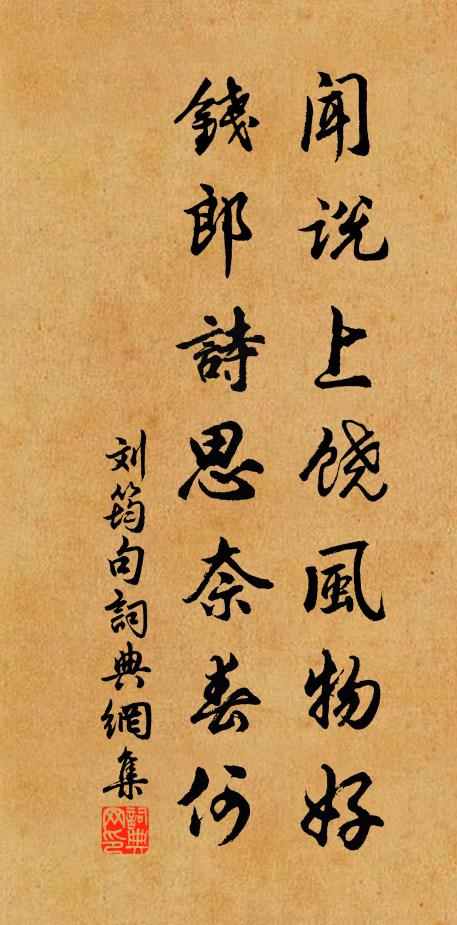 闻说上饶風物好
錢郎詩思奈春何
刘筠句詞典網集
詞典网印